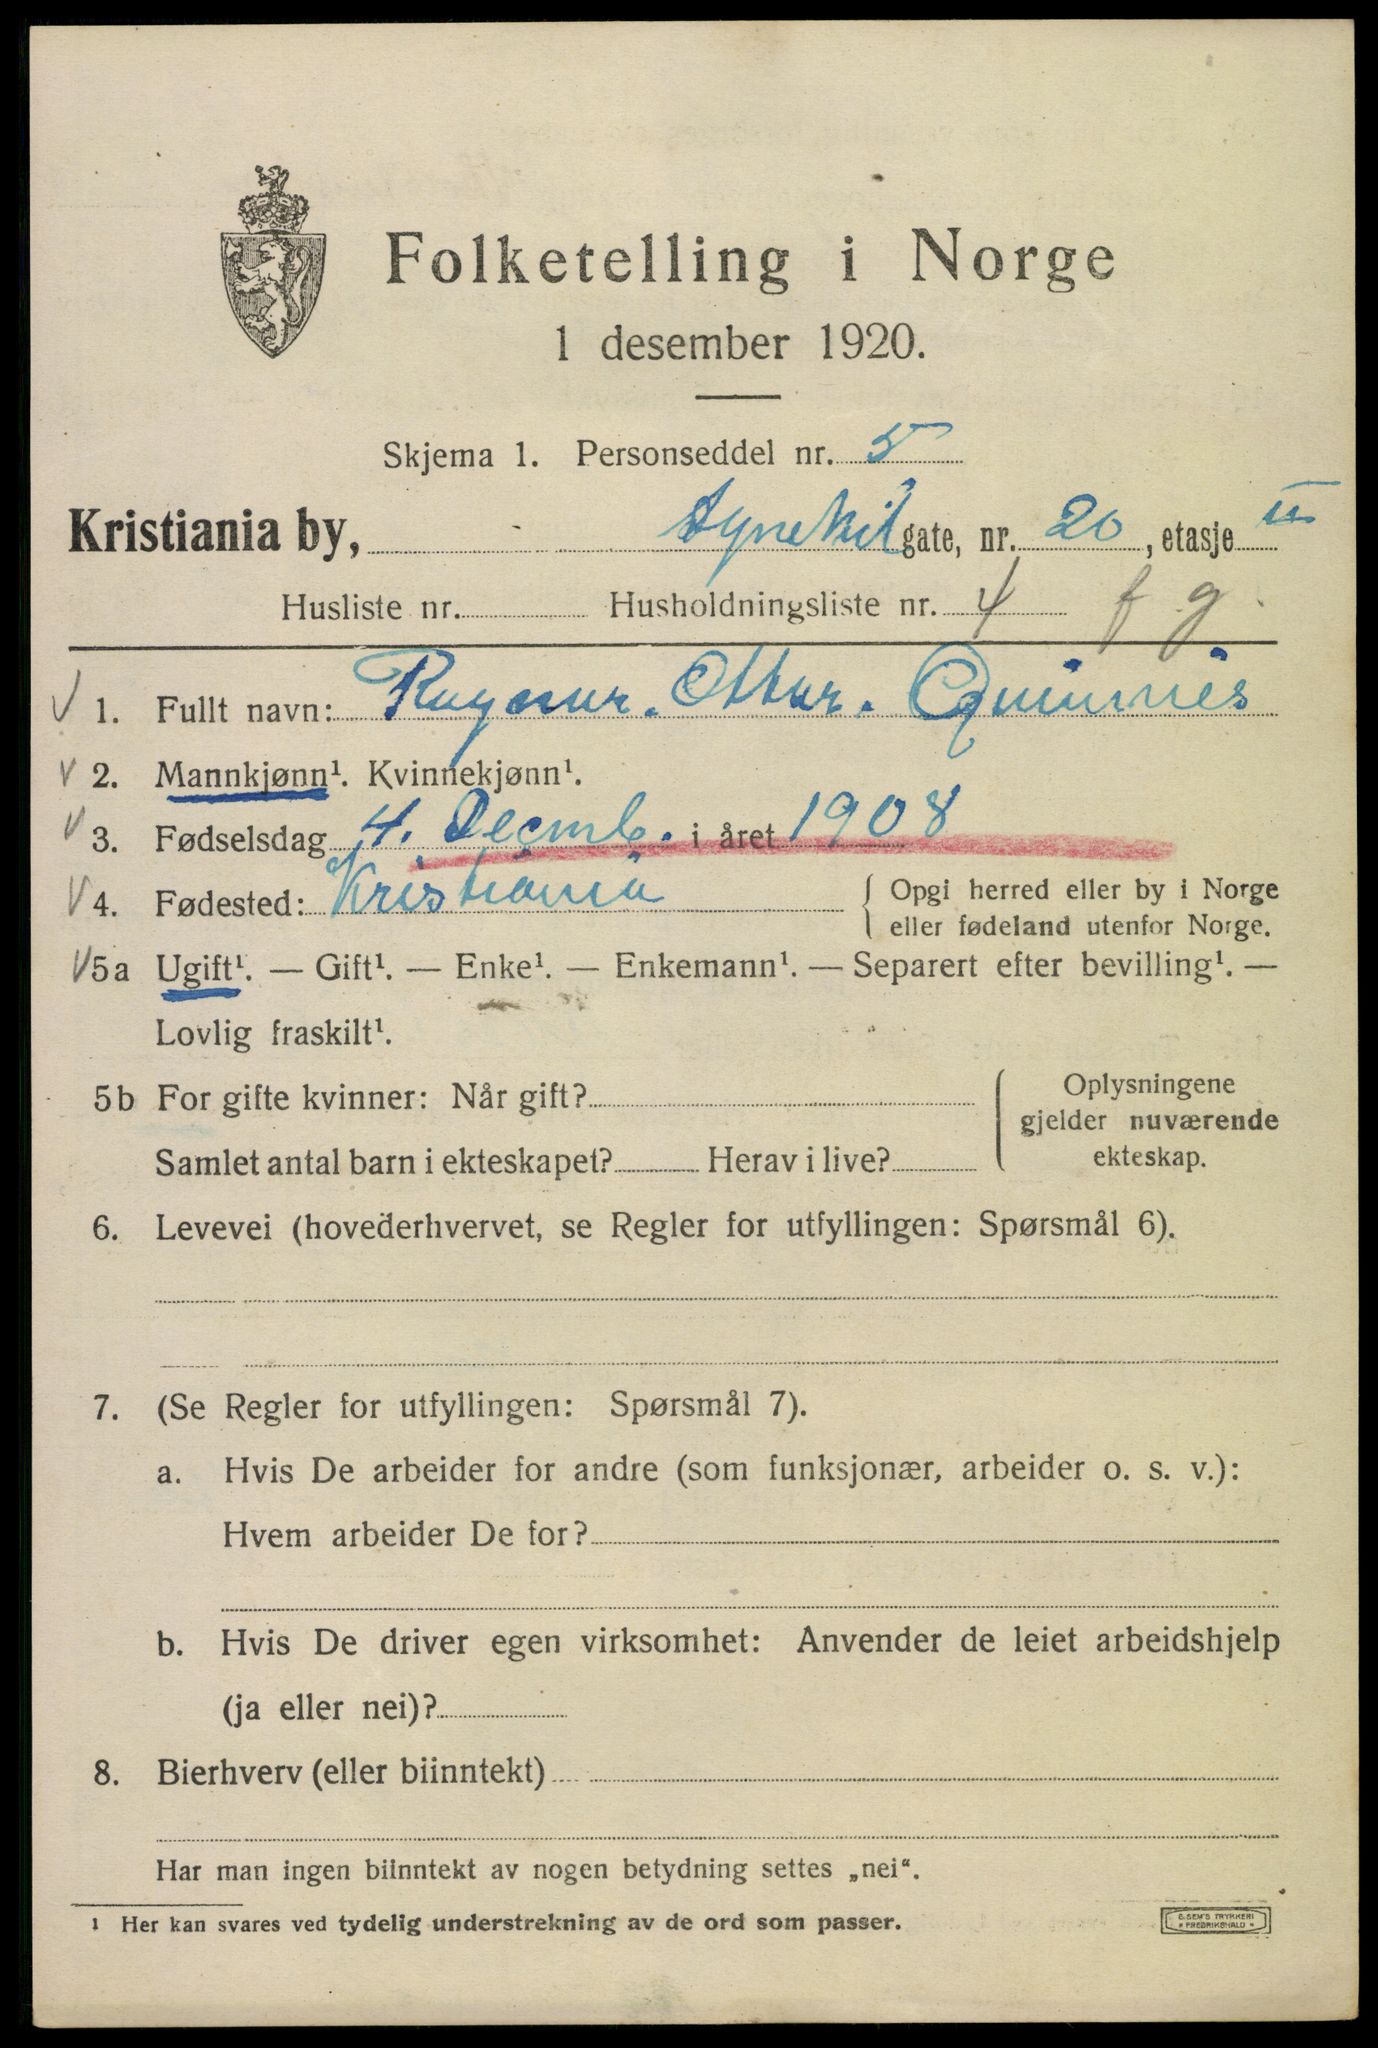 Folketelling i Norge
1 desember 1920.
Skjema 1. Personseddel nr. 5
Kristiania by, Dynekilgate, nr. 20, etasje II
Husliste nr. Husholdningsliste nr. 4 f. g.
1. Fullt navn: Ragnar. Ottar.
2. Mannkjønn¹. Kvinnekjønn¹.
3. Fødselsdag 4. Decmb. i året 1908
4. Fødested: Kristiania { Opgi herred eller by i Norge
eller fødeland utenfor Norge.
5a Ugift¹. — Gift¹. — Enke¹. — Enkemann¹. — Separert efter bevilling¹. —
Lovlig fraskilt¹.
5b For gifte kvinner: Når gift?
Samlet antal barn i ekteskapet? Herav i live?
Oplysningene
gjelder nuværende
ekteskap.
6. Levevei (hovederhvervet, se Regler for utfyllingen: Spørsmål 6).
7. (Se Regler for utfyllingen: Spørsmål 7).
a. Hvis De arbeider for andre (som funksjonær, arbeider o. s. v.):
Hvem arbeider De for?
b. Hvis De driver egen virksomhet: Anvender de leiet arbeidshjelp
(ja eller nei)?
8. Bierhverv (eller biinntekt)
Har man ingen biinntekt av nogen betydning settes „nei“.
1 Her kan svares ved tydelig understrekning av de ord som passer.
E. SEM'S TRYKKERI
* FREDRIKSHALD *